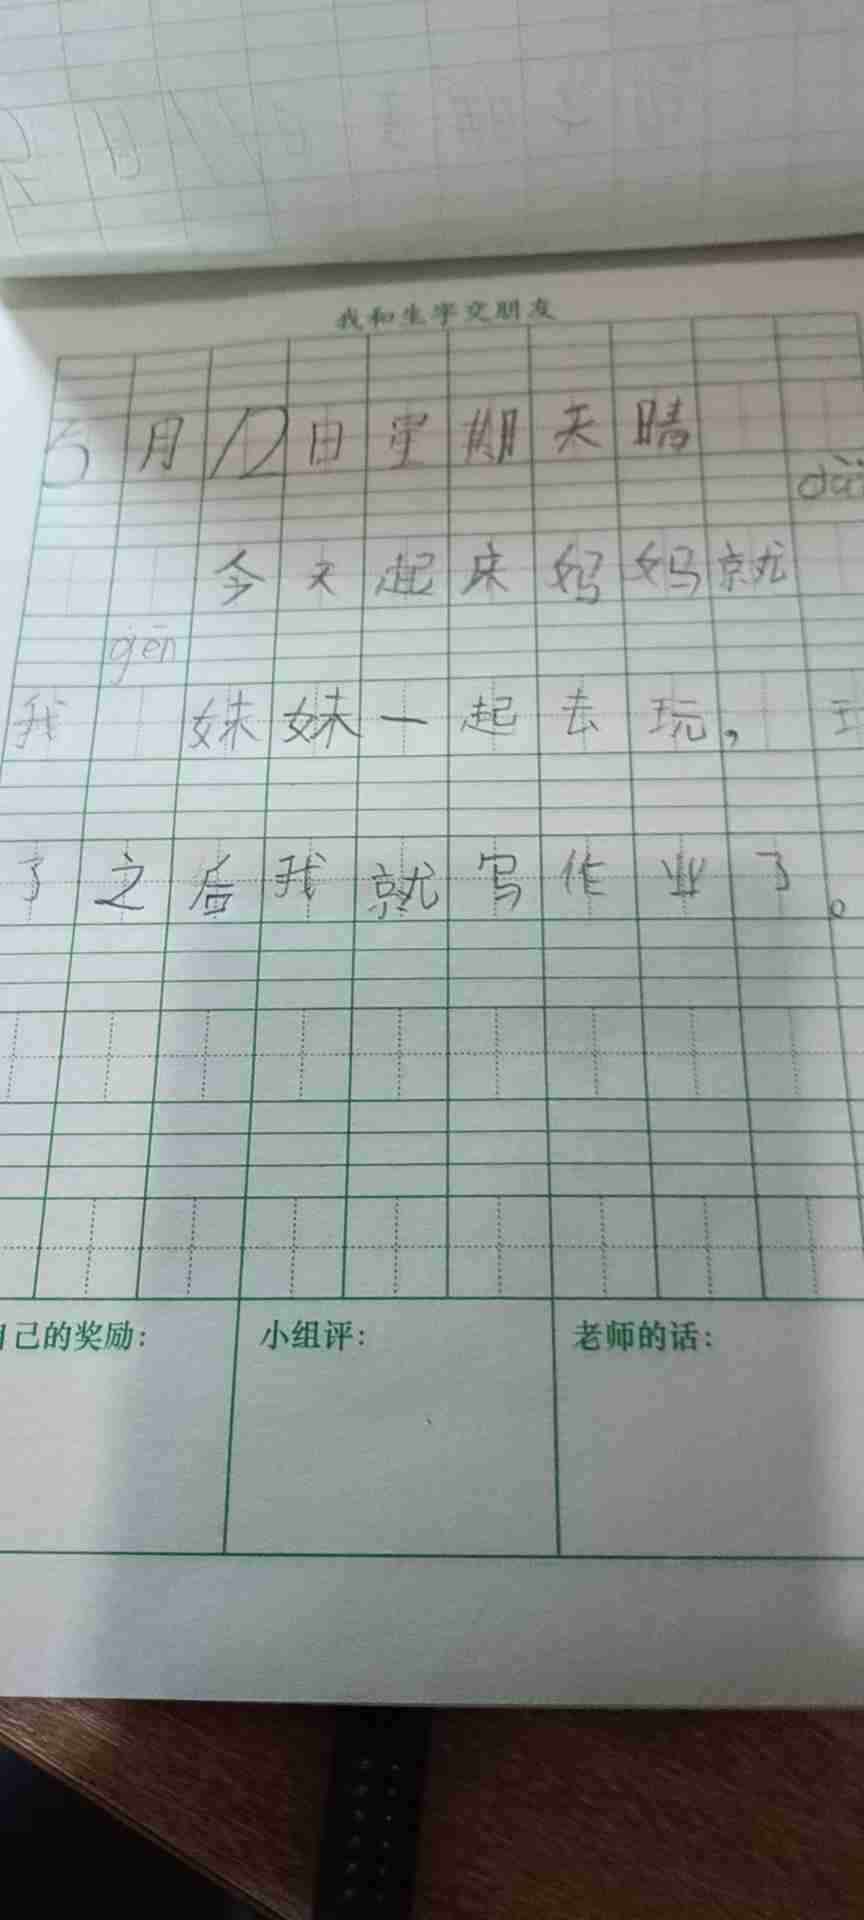 我和生字交朋友
5月12日星期天晴
dài
今天起床妈妈就
gēn
我 妹妹一起去玩，玩
了之后我就写作业了。
自己的奖励： 小组评： 老师的话：